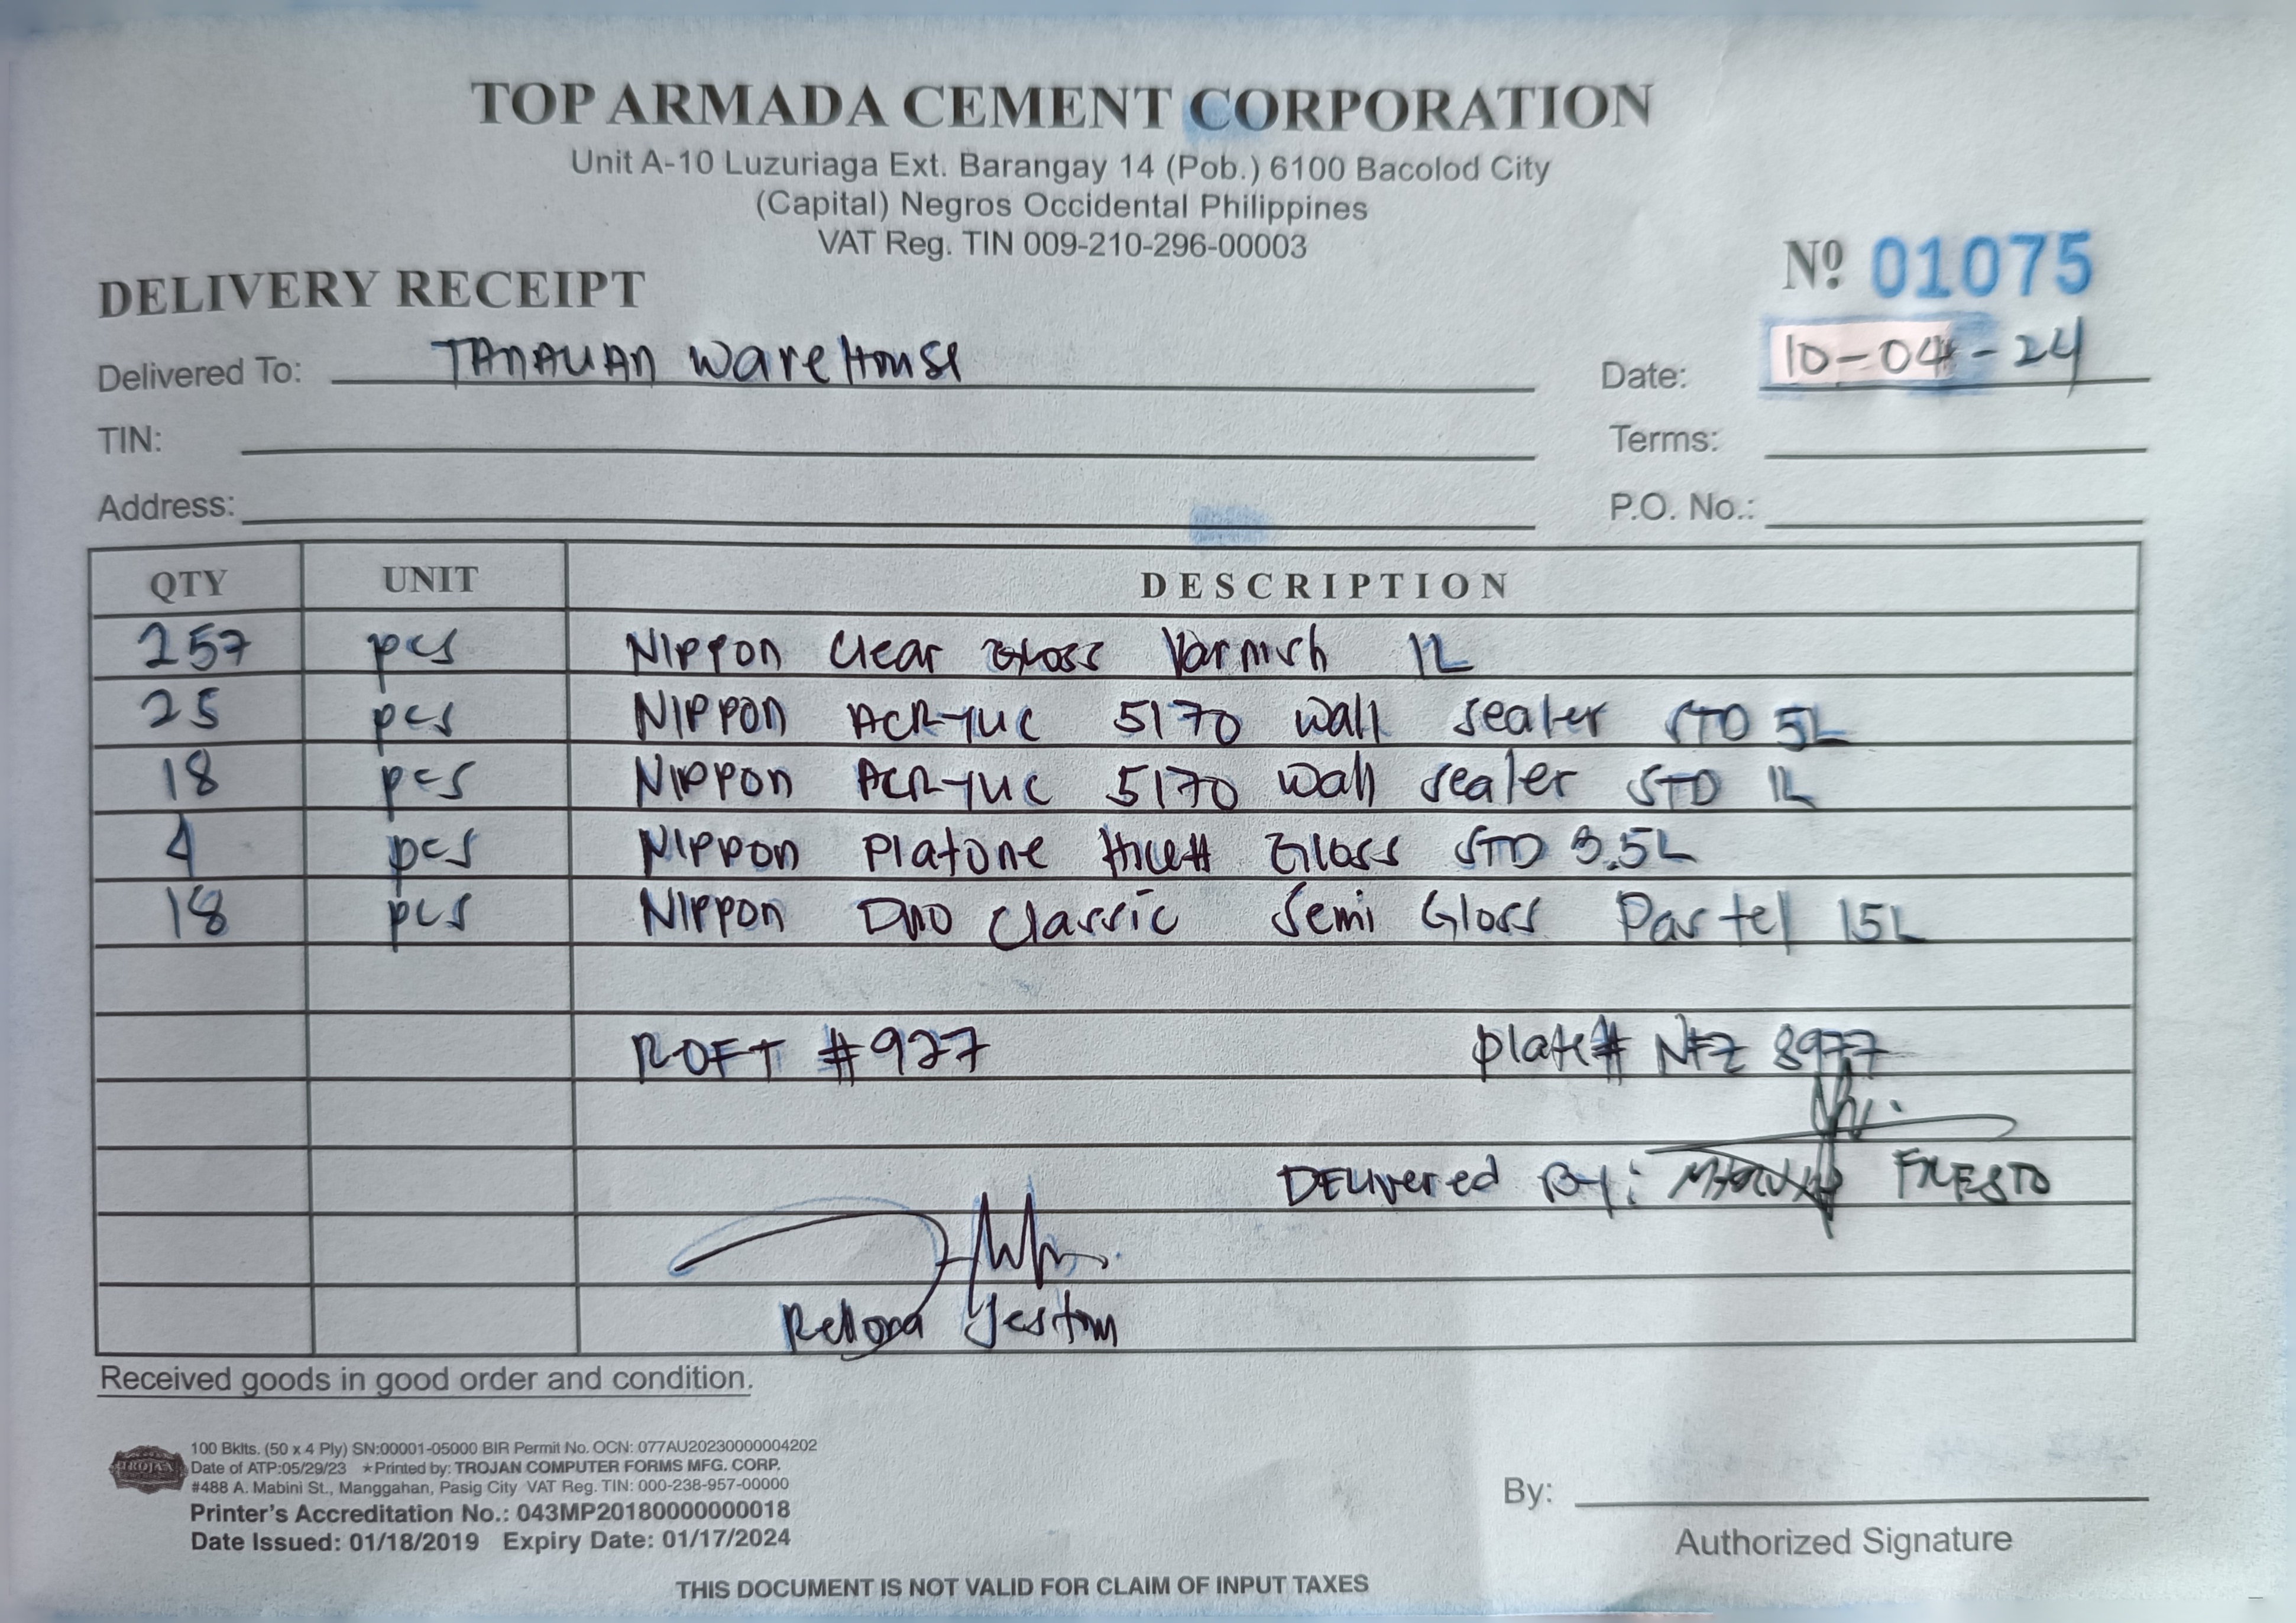 TOP ARMADA CEMENT CORPORATION
Unit A-10 Luzuriaga Ext. Barangay 14 (Pob.) 6100 Bacolod City
(Capital) Negros Occidental Philippines
VAT Reg. TIN 009-210-296-00003
Nº 01075
DELIVERY RECEIPT
Delivered To: TANAUAN WareHouse Date: 10-04-24
TIN: Terms:
Address: P.O. No.:
QTY UNIT DESCRIPTION
257 pcs NIPPON Clear Gloss Varnish 1L
25 pcs NIPPON ACRYLIC 5170 Wall Sealer STD 5L
18 pcs NIPPON ACRYLIC 5170 Wall Sealer STD 1L
4 pcs NIPPON Platone Gloss STD 3.5L
18 pcs NIPPON Duo Classic Semi Gloss Pastel 15L
ROFT #927 plate# NFZ 8977
DELivered By:
Rellora Jestom
Received goods in good order and condition.
TROJAN
100 Bklts. (50 x 4 Ply) SN:00001-05000 BIR Permit No. OCN: 077AU20230000004202
Date of ATP:05/29/23 ★Printed by: TROJAN COMPUTER FORMS MFG. CORP.
#488 A. Mabini St., Manggahan, Pasig City VAT Reg. TIN: 000-238-957-00000
Printer's Accreditation No.: 043MP20180000000018
Date Issued: 01/18/2019 Expiry Date: 01/17/2024
By:
Authorized Signature
THIS DOCUMENT IS NOT VALID FOR CLAIM OF INPUT TAXES